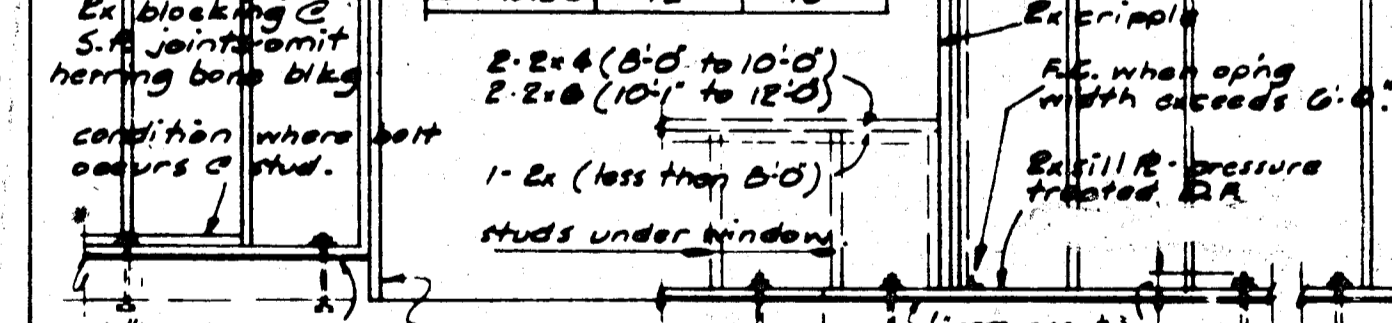 2x blocking @
S.P. joints omit
herring bone blkg
condition where bolt
occurs @ stud.
2-2x4 (8'-0" to 10'-0")
2-2x6 (10'-1" to 12'-0")
1-2x (less than 8'-0")
studs under window.
2x cripple
F.C. when op'ng
width exceeds 6'-0".
2x sill PL - pressure
treated D.F.